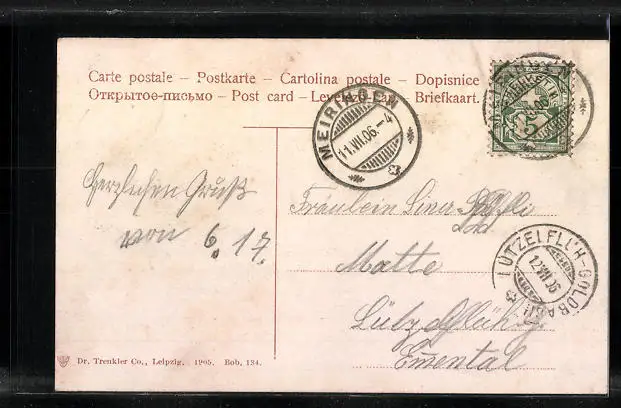 Carte postale – Postkarte – Cartolina postale – Dopisnice
Открытое-письмо – Post card – Levelező-Lap – Briefkaart.
MEIRINGEN
11.VII.06.–4
5
Herzlichen Gruß
von 6. 17.
Fräulein Lina
Matte
Lützelflüh
Emental
LÜTZELFLÜH-GOLDBACH
12.VII.06
Dr. Trenkler Co., Leipzig. 1905. Bob. 134.